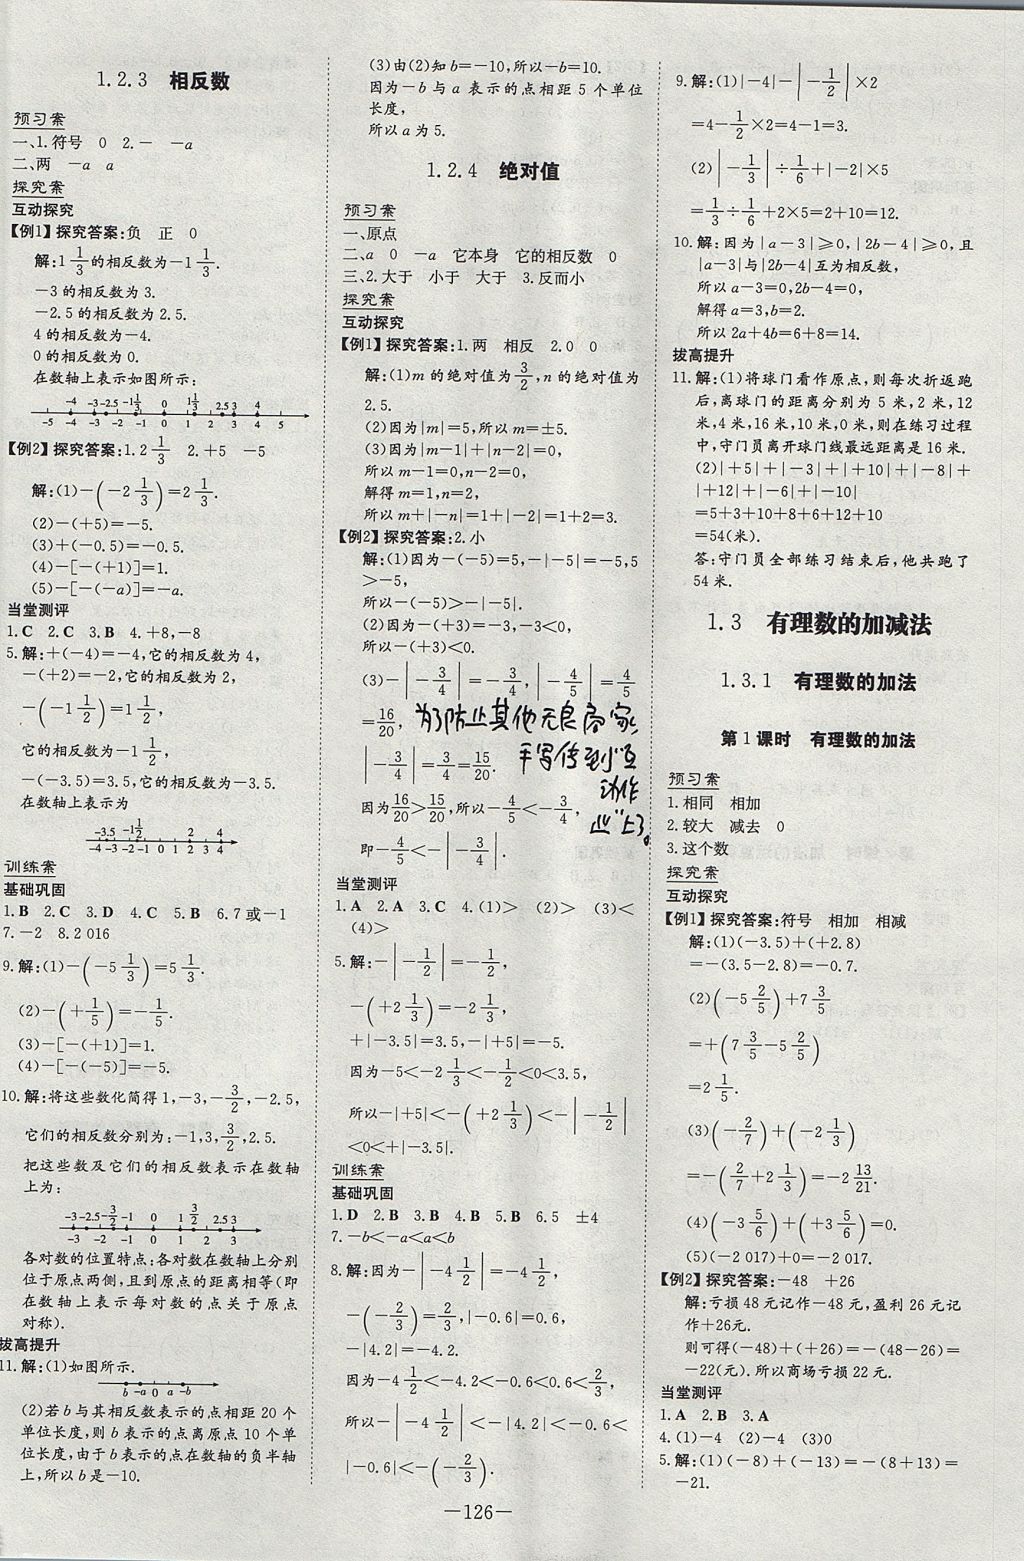 1.2.3 相反数
预习案
一、1.符号 0 2.- -a
二、两 -a a
探究案
互动探究
【例1】探究答案:负 正 0
解:1 1/3的相反数为-1 1/3.
-3的相反数为3.
-2.5的相反数为2.5.
4的相反数为-4.
0的相反数为0.
在数轴上表示如图所示:
-4 -3 -2.5 -1 1/3 0 1 1/3 2.5 3 4
-5 -4 -3 -2 -1 0 1 2 3 4 5
【例2】探究答案:1.2 1/3 2.+5 -5
解:(1)-(-2 1/3)=2 1/3.
(2)-(+5)=-5.
(3)+(-0.5)=-0.5.
(4)-[-(+1)]=1.
(5)-[-(-a)]=-a.
当堂测评
1.C 2.C 3.B 4.+8,-8
5.解:+(-4)=-4,它的相反数为4,
-(+2)=-2,它的相反数为2,
-(-1 1/2)=1 1/2,
它的相反数为-1 1/2,
-(-3.5)=3.5,它的相反数为-3.5.
在数轴上表示为
-3.5 -1 1/2 2 4
-4 -3 -2 -1 0 1 2 3 4
训练案
基础巩固
1.B 2.C 3.D 4.C 5.B 6.7或-1
7.-2 8.2 016
9.解:(1)-(-5 1/3)=5 1/3.
(2)-(+1/5)=-1/5.
(3)-[-(+1)]=1.
(4)-[-(-5)]=-5.
10.解:将这些数化简得1,-3,-3/2,-2.5,
它们的相反数分别为:-1,3,3/2,2.5.
把这些数及它们的相反数表示在数轴
上为:
-3 -2.5 -3/2 -1 0 1 3/2 2.5 3
-3 -2 -1 0 1 2 3
各对数的位置特点:各对数在数轴上分别
位于原点两侧,且到原点的距离相等(即
在数轴上表示每对数的点关于原点
对称).
拔高提升
11.解:(1)如图所示.
b -a 0 a -b
(2)若b与其相反数表示的点相距20个
单位长度,则b表示的点离原点10个单
位长度,由于b表示的点在数轴的负半轴
上,所以b是-10.
(3)由(2)知b=-10,所以-b=10.
因为-b与a表示的点相距5个单位
长度,
所以a为5.
1.2.4 绝对值
预习案
一、原点
二、a 0 -a 它本身 它的相反数 0
三、2.大于 小于 大于 3.反而小
探究案
互动探究
【例1】探究答案:1.两 相反 2.0 0
解:(1)m的绝对值为3/2,n的绝对值为
2.5.
(2)因为|m|=5,所以m=±5.
(3)因为|m-1|+|n-2|=0,
所以m-1=0,n-2=0,
解得m=1,n=2,
所以m+|-n|=1+|-2|=1+2=3.
【例2】探究答案:2.小
解:(1)因为-(-5)=5,-|-5|=-5,5
>-5,
所以-(-5)>-|-5|.
(2)因为-(+3)=-3,-3<0,
所以-(+3)<0.
(3)-|-3/4|=-3/4,|-4/5|=4/5
=16/20,
为了防止其他无良商家,
手写传到"互
动作
业"上了。
|-3/4|=3/4=15/20.
因为16/20>15/20,所以-4/5<-3/4,
即-4/5<-|-3/4|.
当堂测评
1.A 2.A 3.C 4.(1)> (2)> (3)<
(4)>
5.解:-|-1/2|=-1/2,
-(+2 1/3)=-2 1/3,
+|-3.5|=3.5,-|+5|=-5.
因为-5<-2 1/3<-1/2<0<3.5,
所以-|+5|<-(+2 1/3)<-|-1/2|
<0<+|-3.5|.
训练案
基础巩固
1.D 2.B 3.B 4.B 5.B 6.5 ±4
7.-b<-a<a<b
8.解:因为-|-4 1/2|=-4 1/2,
-(-2/3)=2/3,|-0.6|=0.6,
-|4.2|=-4.2.
因为-4 1/2<-4.2<-0.6<0.6<2/3,
所以-|-4 1/2|<-|4.2|<-0.6<
|-0.6|<-(-2/3).
9.解:(1)|-4|-|-1/2|×2
=4-1/2×2=4-1=3.
(2)|-1/3|÷1/6+|-2|×5
=1/3÷1/6+2×5=2+10=12.
10.解:因为|a-3|≥0,|2b-4|≥0,且
|a-3|与|2b-4|互为相反数,
所以a-3=0,2b-4=0,
解得a=3,b=2.
所以2a+4b=6+8=14.
拔高提升
11.解:(1)将球门看作原点,则每次折返跑
后,离球门的距离分别为5米,2米,12
米,4米,16米,10米,0米,则在练习过程
中,守门员离开球门线最远距离是16米.
(2)|+5|+|-3|+|+10|+|-8|+
|+12|+|-6|+|-10|
=5+3+10+8+6+12+10
=54(米).
答:守门员全部练习结束后,他共跑了
54米.
1.3 有理数的加减法
1.3.1 有理数的加法
第1课时 有理数的加法
预习案
1.相同 相加
2.较大 减去 0
3.这个数
探究案
互动探究
【例1】探究答案:符号 相加 相减
解:(1)(-3.5)+(+2.8)
=-(3.5-2.8)=-0.7.
(2)(-5 2/5)+7 3/5
=+(7 3/5-5 2/5)
=2 1/5.
(3)(-2/7)+(-2 1/3)
=-(2/7+2 1/3)=-2 13/21.
(4)(-3 5/6)+(+3 5/6)=0.
(5)(-2 017)+0=-2 017.
【例2】探究答案:-48 +26
解:亏损48元记作-48元,盈利26元记
作+26元.
则可得(-48)+(+26)=-(48-26)=
-22(元).所以商场亏损22元.
当堂测评
1.A 2.B 3.A
4.(1)-4 (2)-4 (3)0
5.解:(1)(-8)+(-13)=-(8+13)=
-21.
—126—